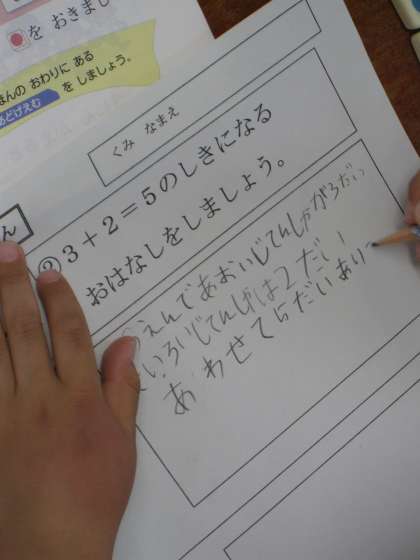 を おきまし
まんの おわりに ある
あどけえむ を しましょう。
くみ なまえ
ん
② 3+2=5のしきになる
おはなしをしましょう。
えんであおいじてんしゃが3だい
いろいじてんしゃは2だい
あわせて5だいあり